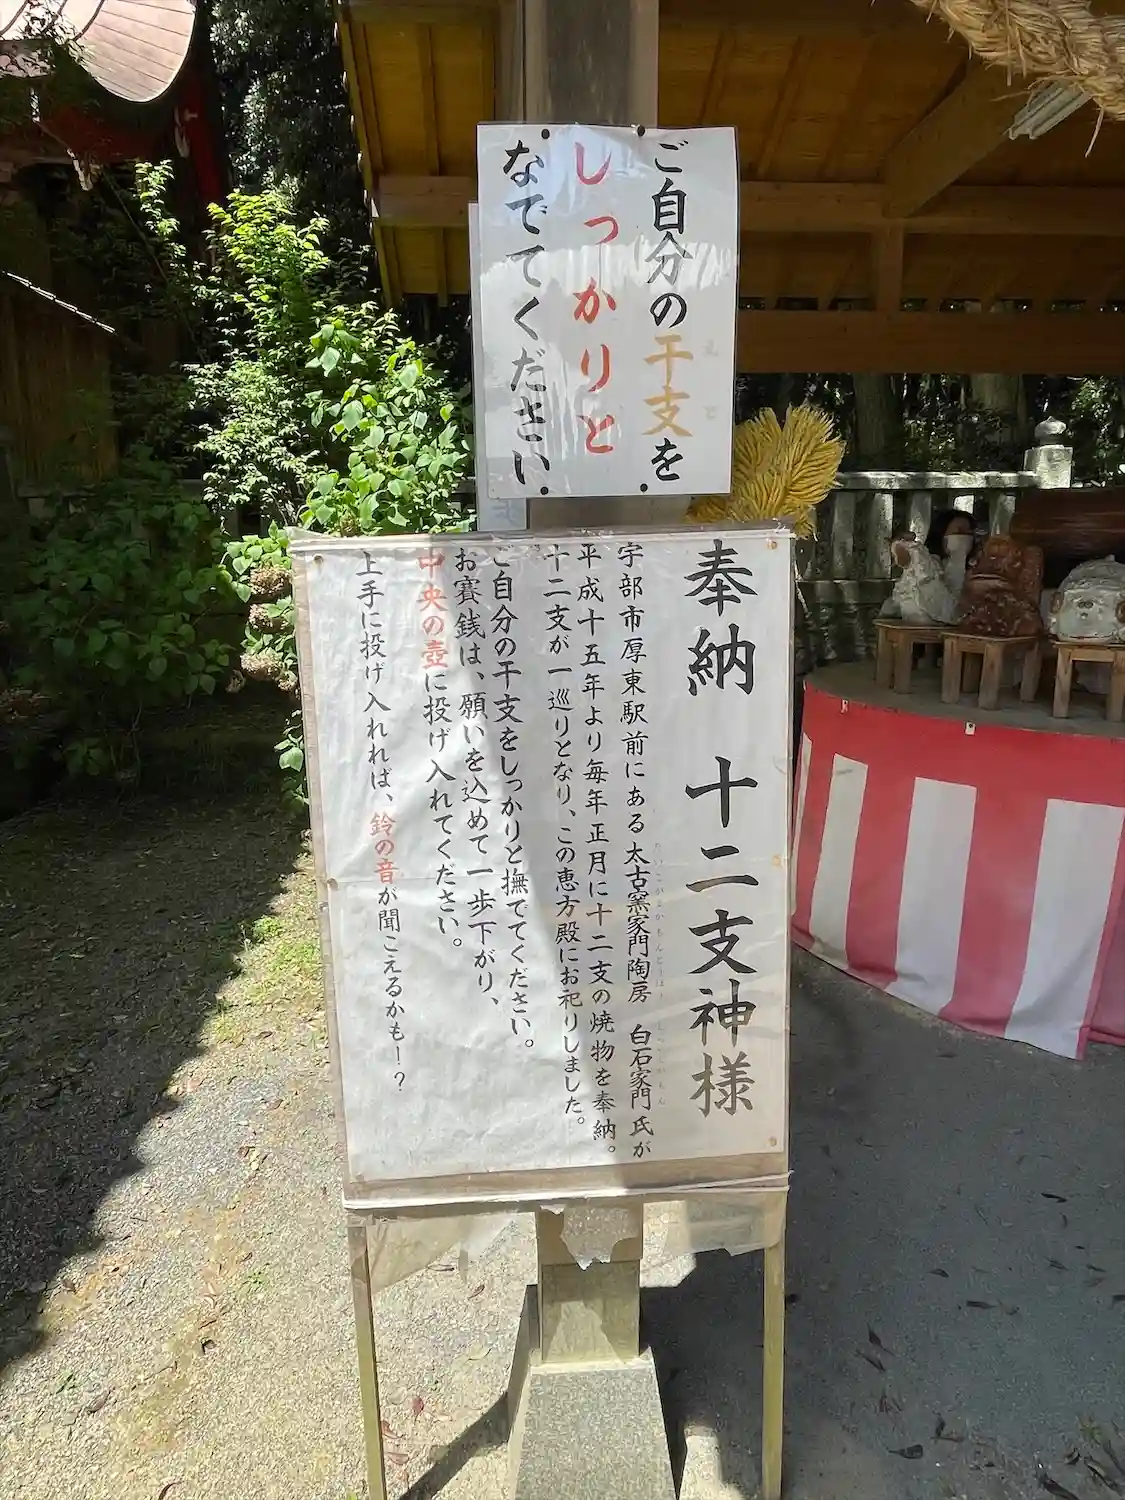 ご自分の干支を
しっかりと
なでてください
奉納 十二支神様
宇部市厚東駅前にある太古窯家門陶房 白石家門氏が
平成十五年より毎年正月に十二支の焼物を奉納。
十二支が一巡りとなり、この恵方殿にお祀りしました。
ご自分の干支をしっかりと撫でてください。
お賽銭は、願いを込めて一歩下がり、
中央の壺に投げ入れてください。
上手に投げ入れれば、鈴の音が聞こえるかも!?